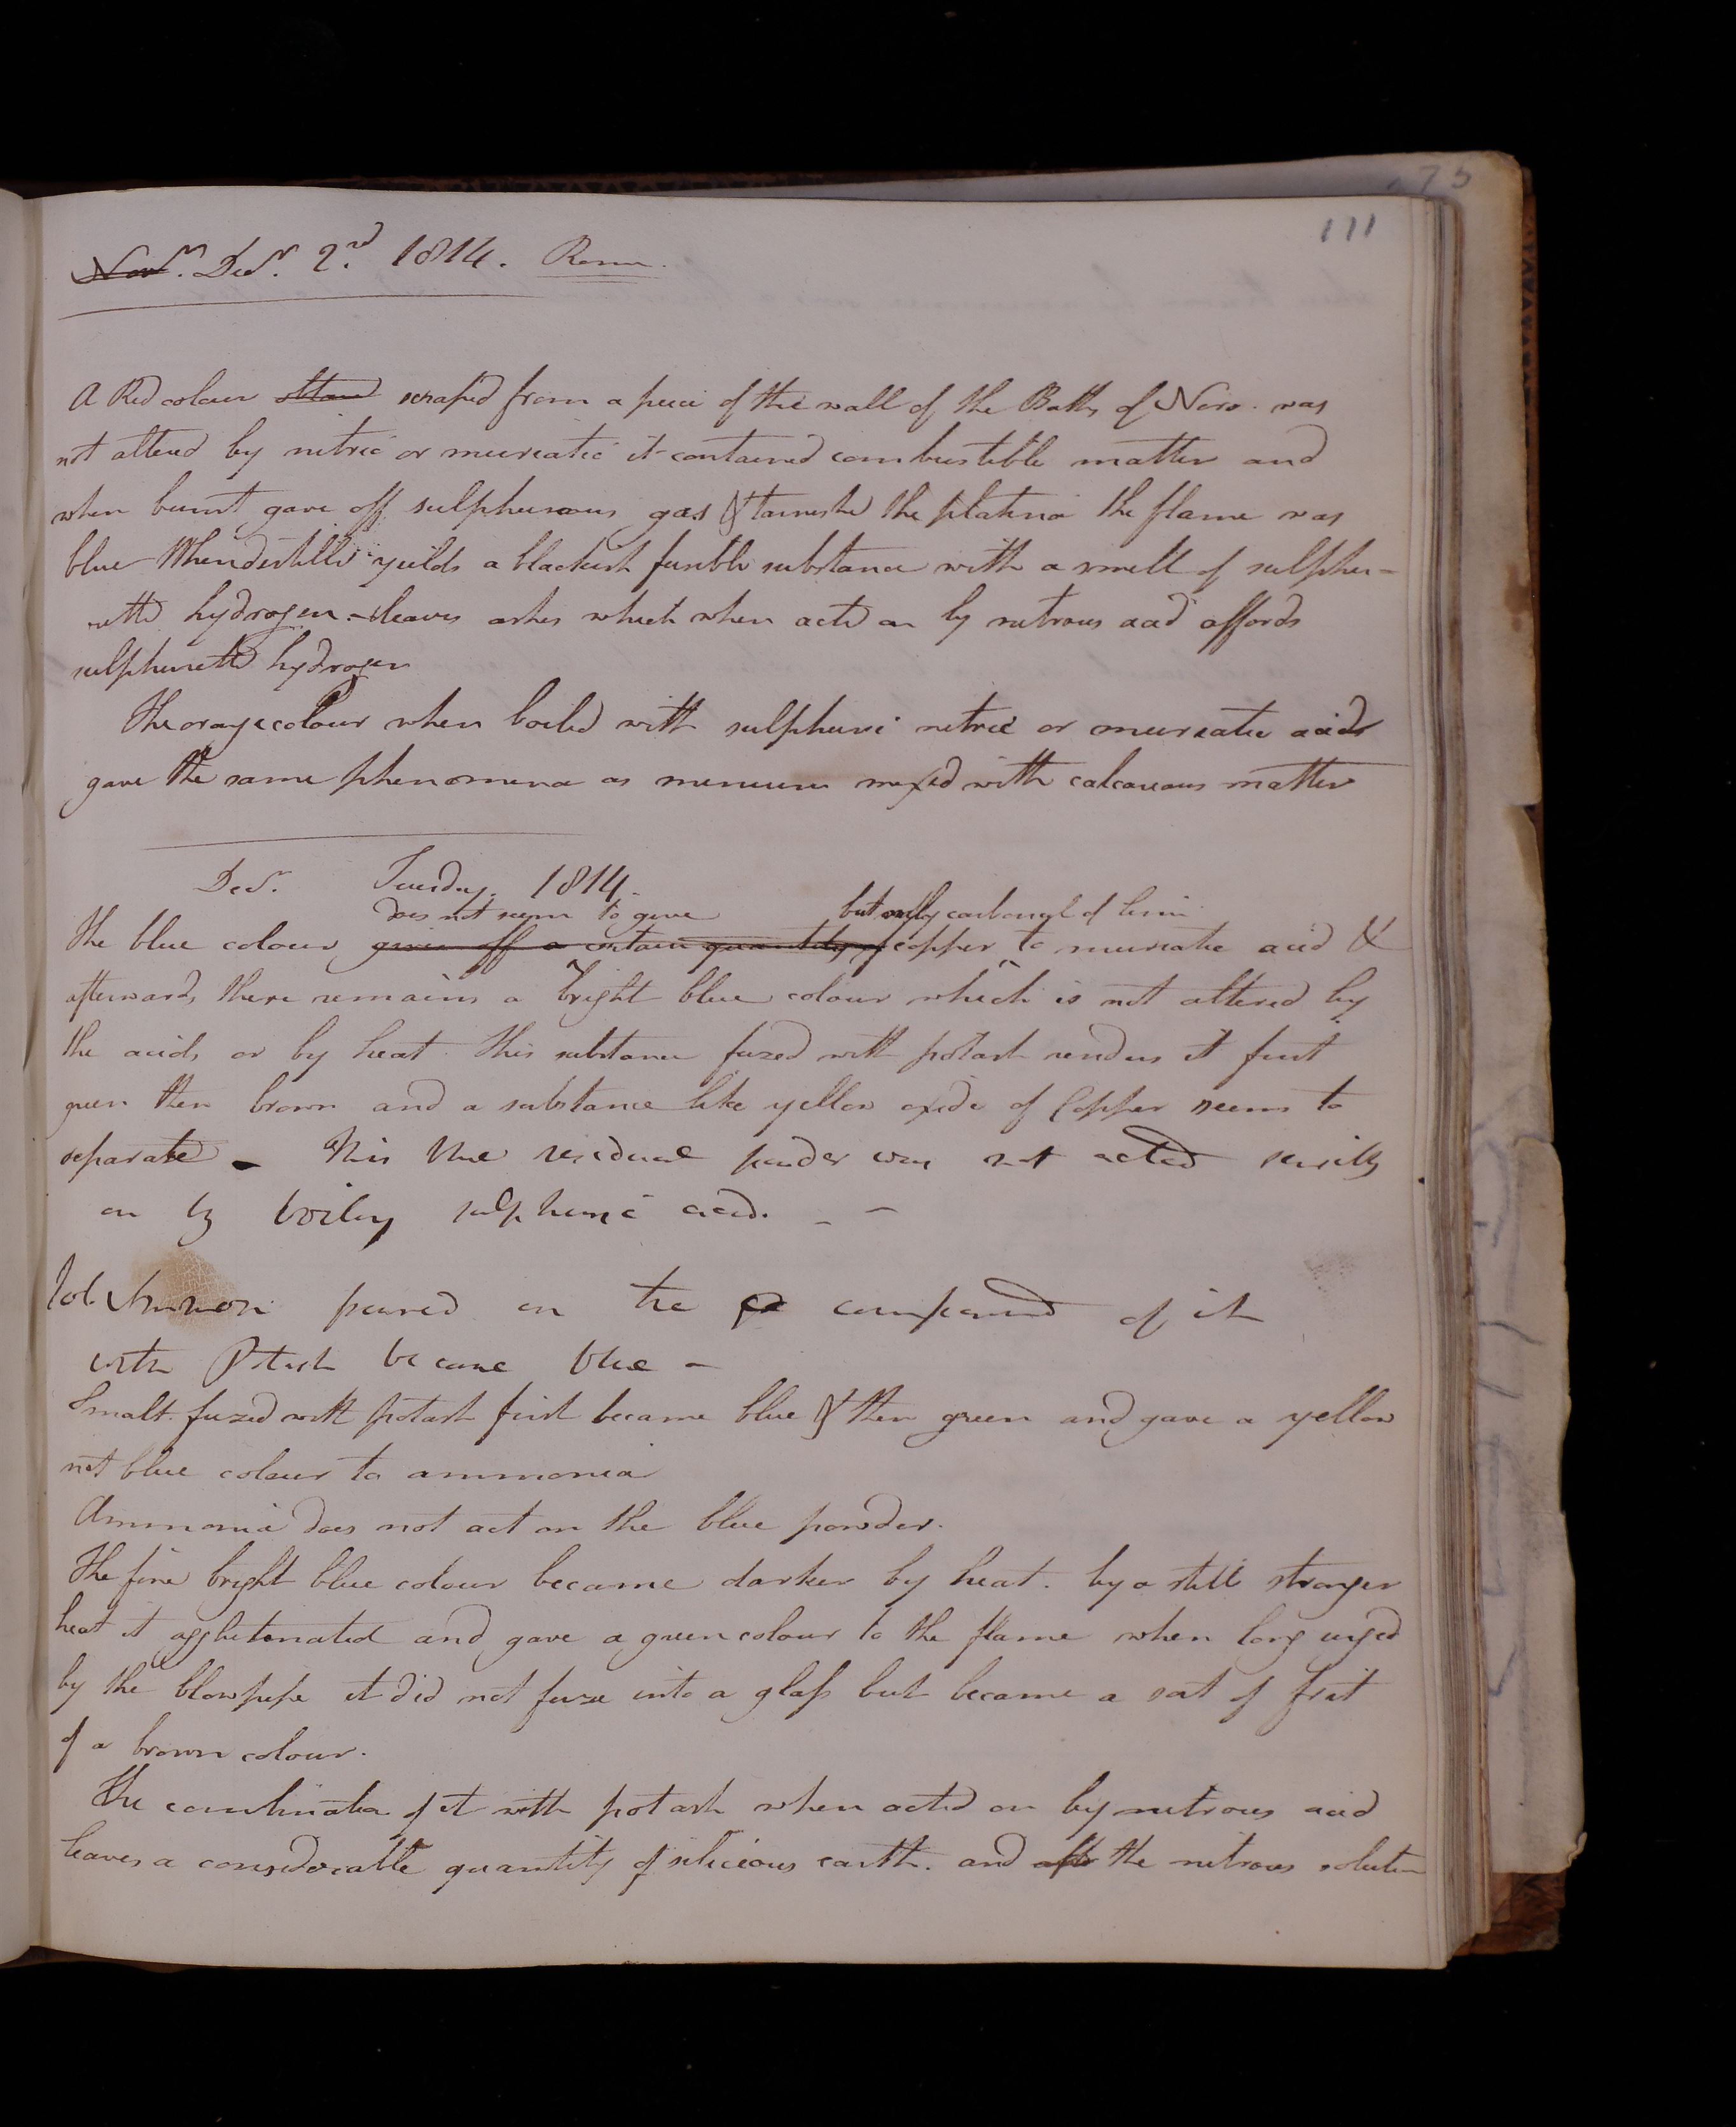 111
Novr. Decr. 2nd. 1814. Rome.
A Red colour obtained scraped from a peice of the wall of the Baths of Nero. was
not altered by nitric or muriatic it contained combustible matter and
when burnt gave off sulphurous gas & tarnishd the platina the flame was
blue When distilld yeilds a blackish fusible substance with a smell of sulphu=
rettd hydrogen - leaves ashes which when acted on by nitrous acid affords
sulphurettd hydrogen
The orange colour when boiled with sulphuric nitric or muriatic acids
gave the same phenomena as minium mixed with calcareous matter
Decr. Tuesday. 1814.
does not seem to give but only carbonate of lime
The blue colour gives off a certain quantity of copper to muriatic acid &
afterwards there remains a bright blue colour which is not altered by
the acids or by heat. this substance fuzed with potash renders it first
green then brown and a substance like yellow oxide of Copper seems to
separate - This blue residual powder was not acted sensibly
on by boiling sulphuric acid. - -
Sol. Ammon poured on the compound of it
with Potash became blue -
Smalt fuzed with potash first became blue & then green and gave a yellow
not blue colour to ammonia
Ammonia does not act on the blue powder.
The fine bright blue colour became darker by heat. by a still stronger
heat it agglutenated and gave a green colour to the flame when long urged
by the blowpipe it did not fuze into a glass but became a sort of frit
of a brown colour.
The combination of it with potash when acted on by nitrous acid
leaves a considerable quantity of silicious earth. and after the nitrous solution